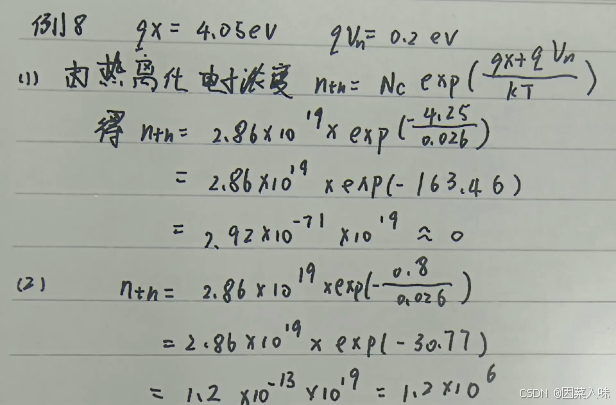 例18 qχ = 4.05eV qVn = 0.2 eV
(1) 由热离化电子浓度 nth = Nc exp(qχ+qVn/kT)
得 nth = 2.86×10^19 × exp(-4.25/0.026)
= 2.86×10^19 × exp(-163.46)
= 2.92×10^-71 × 10^19 ≈ 0
(2) nth = 2.86×10^19 × exp(-0.8/0.026)
= 2.86×10^19 × exp(-30.77)
= 1.2 ×10^-13 ×10^19 = 1.2×10^6
CSDN @因菜入味